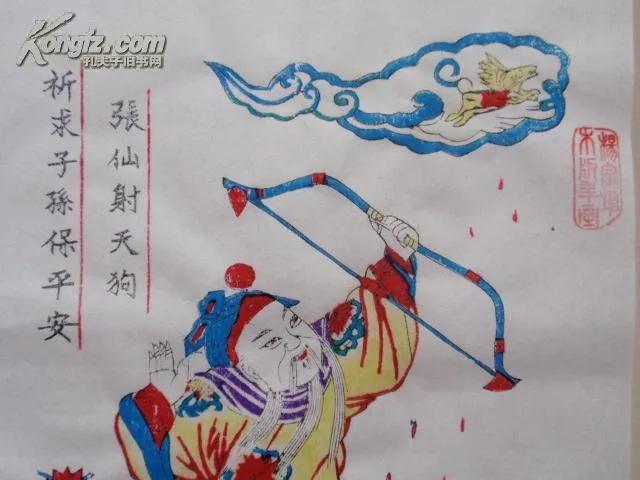 Kongfz.com
孔夫子旧书网
張仙射天狗
祈求子孫保平安
楊家埠
木版年画